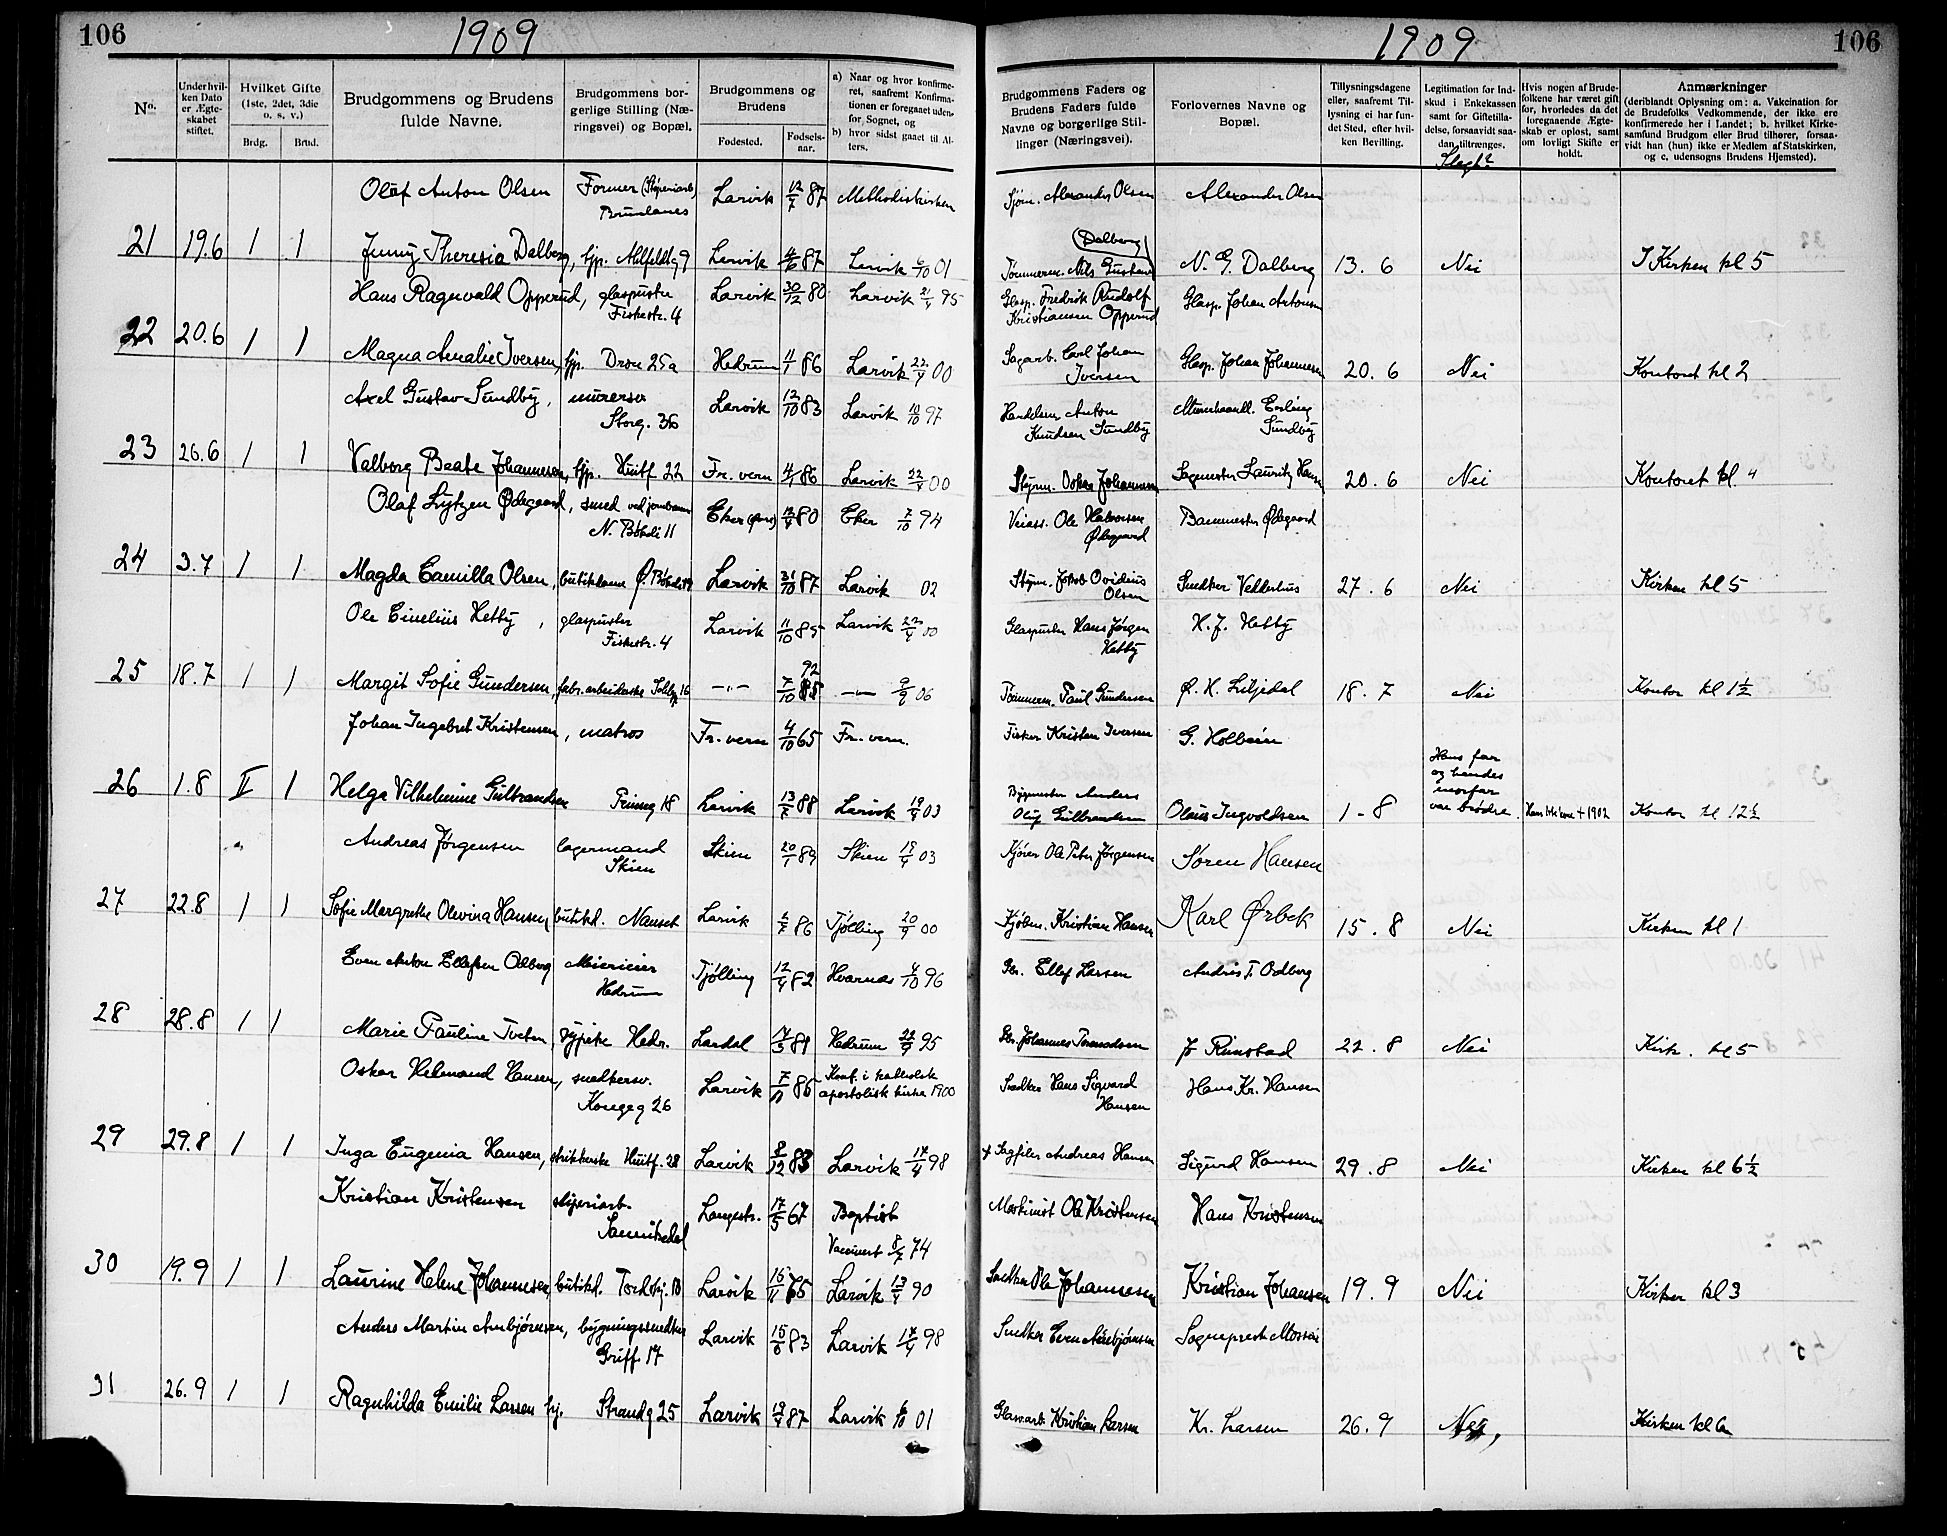 106
1909
1909
106
No.
Under hvil-
ken Dato
er Ægte-
skabet
stiftet.
Hvilket Gifte
(1ste, 2det, 3die
o. s. v.)
Brdg.
Brud.
Brudgommens og Brudens
fulde Navne.
Brudgommens bor-
gerlige Stilling (Næ-
ringsvei) og Bopæl.
Brudgommens og
Brudens
Fødested.
Fødsels-
aar.
a) Naar og hvor konfirme-
ret, saafremt Konfirma-
tionen er foregaaet uden-
for Sognet, og
b) hvor sidst gaaet til Al-
ters.
Brudgommens Faders og
Brudens Faders fulde
Navne og borgerlige Stil-
linger (Næringsvei).
Forlovernes Navne og
Bopæl.
Tillysningsdagene
eller, saafremt Til-
lysning ei har fun-
det Sted, efter hvil-
ken Bevilling.
Legitimation for Ind-
skud i Enkekassen
samt for Giftetilla-
delse, forsaavidt saa-
dan tiltrænges.
Slegt?
Hvis nogen af Brude-
folkene har været gift
før, hvorledes da det
foregaaende Ægte-
skab er opløst, samt
om lovligt Skifte er
holdt.
Anmærkninger
(deriblandt Oplysning om: a. Vakcination for
de Brudefolks Vedkommende, der ikke ere
konfirmerede her i Landet; b. hvilket Kirke-
samfund Brudgom eller Brud tilhører, forsaa-
vidt han (hun) ikke er Medlem af Statskirken,
og c, udensogns Brudens Hjemsted).
Olaf Anton Olsen Former (Støperiarb.) Brunlanes Larvik 12/7 87 Methodistkirken Sjøm. Alexander Olsen Alexander Olsen
21 19.6 1 1 Jenny Theresia Dalberg, hjp. Ahlfeldtg 9 Larvik 87 Larvik 01 Tømmerm. Nils Gustav (Dalberg) N. G. Dalberg 13.6 Nei I Kirken kl 5
Hans Ragnvald Opperud, glaspuster Fiskestr. 4 Larvik 30/12 80 Larvik 21/4 95 Glasp. Fredrik Rudolf Kristiansen Opperud Glasp. Johan Antonsen
22 20.6 1 1 Magna Amalie Iversen, hjp. Dron 25a Hedrum 86 Larvik 22/4 00 Sagarb. Carl Johan Iversen Glasp. Johan Johannesen 20.6 Nei Kontoret kl 2
Axel Gustav Sundby, murersv Storg. 36 Larvik 12/10 83 Larvik 10/10 97 Handelsm Anton Knudsen Sundby Erling Sundby
23 26.6 1 1 Valborg Beate Johannesen, hjp. Huitf 22 Fr.vern 86 Larvik 22/4 00 Styrm. Johannesen Sagmester Lauritz Hansen 20.6 Nei Kontoret kl 4
Olaf Lytzen Ødegaard, smed ved jernbanen N. Bøkeli 11 Eker 80 Eker 7/10 94 Ole Halvorsen Ødegaard Banemester Ødegaard
24 3.7 1 1 Magda Camilla Olsen, butikdame Larvik 31/10 87 Larvik 02 Styrm. Jakob Ovidius Olsen Snedker Vedderhus 27.6 Nei Kirken kl 5
Ole Emelius Hetby, glaspuster Fiskestr. 4 Larvik 11/10 85 Larvik 22/4 00 Glaspuster Hans Jørgen Hetby H. J. Hetby
25 18.7 1 1 Margit Sofie Gundersen, fabr.arbeiderske — " — 7/10 92 — " — 06 Tømmerm. Paul Gundersen Ø. H. Liljedal 18.7 Nei Kontor kl 1½
Johan Ingebret Kristensen, matros Fr.vern 4/10 65 Fr.vern. Fisker Kristen Iversen G. Holbein
26 1.8 II 1 Helga Vilhelmine Gulbrandsen Prinseg 18 Larvik 13/7 88 Larvik 19/4 03 Bygmester Anders Oluf Gulbrandsen Olaus Ingvoldsen 1-8 Hans far og hendes morfar var brødre. + 1902 Kontor kl 12½
Andreas Jørgensen lagermand Skien Skien 20/1 89 Skien 19/4 03 Kjører Ole Peter Jørgensen Søren Hansen
27 22.8 1 1 Sofie Margrethe Olevina Hansen, butikd. Nanset Larvik 86 Tjølling 00 Kjøbm. Kristian Hansen Karl Ørbek 15.8 Nei Kirken kl 1
Even Anton Ellefsen Odberg Meierieier Hedrum Tjølling 12/4 82 Hvarnes 4/10 96 Gbr. Ellef Larsen Andris T Odberg
28 28.8 1 1 Marie Pauline Tveten, sypike Hedr. Lardal 81 Hedrum 22/9 95 Gbr. Johannes Tormodsen J Rimstad 22.8 Nei Kirk. kl 5
Oskar Helmand Hansen, snedkersv. Kongeg 26 Larvik 86 Konf. i katholsk apostolisk kirke 1900 Snedker Hans Sigvard Hansen Hans Kr. Hansen
29 29.8 1 1 Inga Eugenia Hansen, strikkerske Huitf. 28 Larvik 8/12 83 Larvik 17/4 98 + Sagfiler Andreas Hansen Sigurd Hansen 29.8 Nei Kirken kl 6½
Kristian Kristensen støperiarb. Sannikedal Langestr. 17/5 67 Baptist Vaccinert 8/7 74 Maskinist Ole Kristensen Hans Kristensen
30 19.9 1 1 Laurine Helene Johannesen, butikd. Larvik 16/11 75 Larvik 13/4 90 Snedker Ole Johannesen Kristian Johansen 19.9 Nei Kirken kl 3
Anders Martin Arnbjørnsen, bygningssnedker Griff. 17 Larvik 15/6 83 Larvik 17/4 98 Snedker Even Arnbjørnsen Sogneprest
31 26.9 1 1 Ragnhilda Emilie Larsen hj. Strandg 25 Larvik 87 Larvik 01 Glassarb. Kristian Larsen Kr. Larsen 26.9 Nei, Kirken kl 6